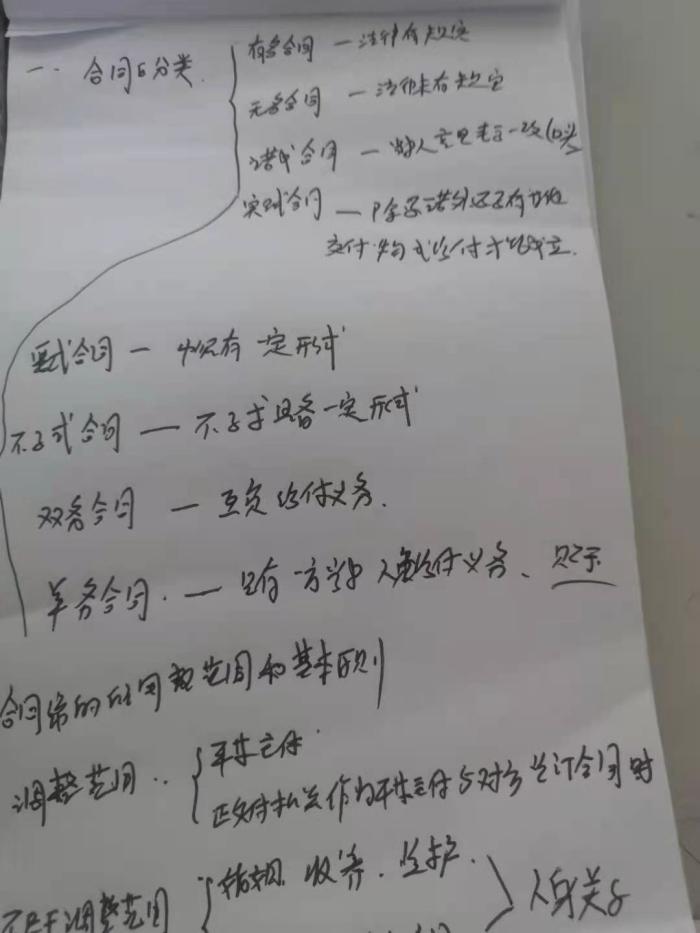 一. 合同的分类
有名合同 — 法律有规定
无名合同 — 法律未有规定
诺成合同 — 当事人意思表示一致(口头)
实践合同 — 除了诺外还要有其他
交付物或给付才能成立.
要式合同 — 必须有一定形式
不要式合同 — 不要求具备一定形式
双务合同 — 互负给付义务.
单务合同. — 只有一方当事人负给付义务、赠予
合同法的调整范围和基本原则
调整范围..
平等主体
政府机关作为平等主体与对方签订合同时
不属于调整范围
婚姻. 收养. 监护.
人身关系